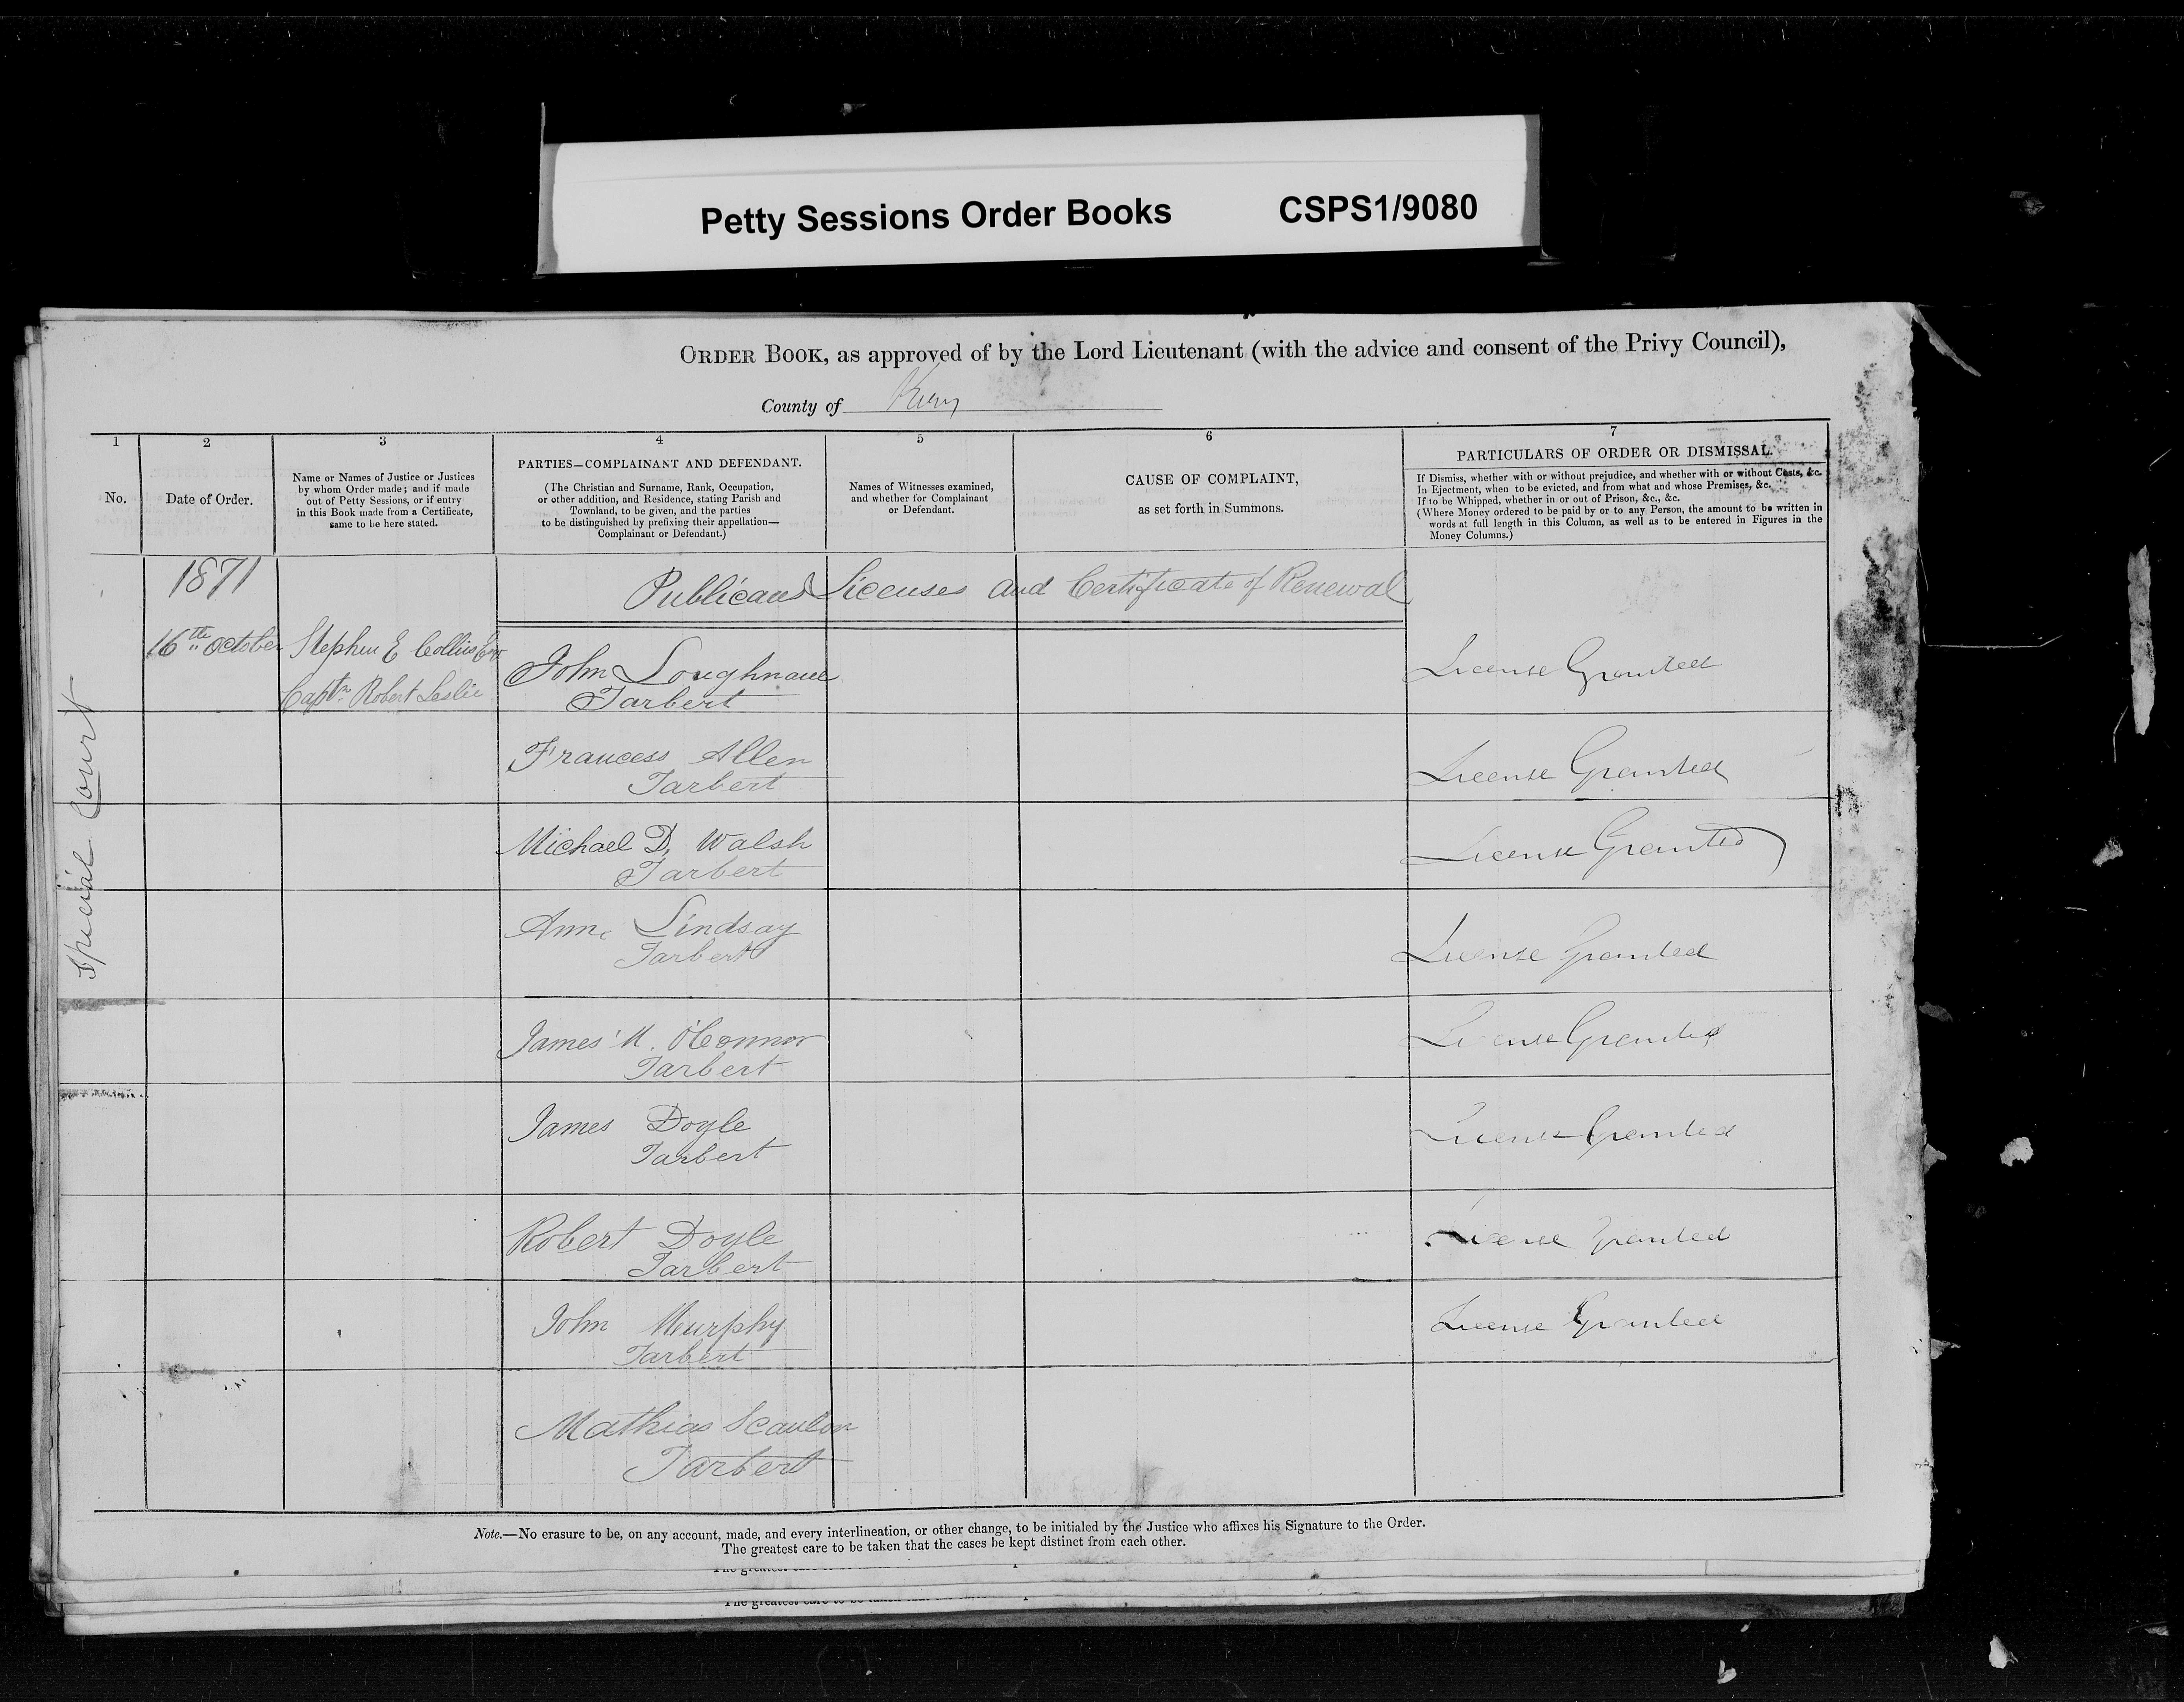 Petty Sessions Order Books CSPS1/9080
ORDER BOOK, as approved of by the Lord Lieutenant (with the advice and consent of the Privy Council),
County of Kerry
1 2 3 4 5 6 7
No.
Date of Order.
Name or Names of Justice or Justices
by whom Order made; and if made
out of Petty Sessions, or if entry
in this Book made from a Certificate,
same to be here stated.
PARTIES—COMPLAINANT AND DEFENDANT.
(The Christian and Surname, Rank, Occupation,
or other addition, and Residence, stating Parish and
Townland, to be given, and the parties
to be distinguished by prefixing their appellation—
Complainant or Defendant.)
Names of Witnesses examined,
and whether for Complainant
or Defendant.
CAUSE OF COMPLAINT,
as set forth in Summons.
PARTICULARS OF ORDER OR DISMISSAL.
If Dismiss, whether with or without prejudice, and whether with or without Costs, &c.
In Ejectment, when to be evicted, and from what and whose Premises, &c.
If to be Whipped, whether in or out of Prison, &c., &c.
(Where Money ordered to be paid by or to any Person, the amount to be written in
words at full length in this Column, as well as to be entered in Figures in the
Money Columns.)
Special Court
1871
Publicans Licenses and Certificate of Renewal
16th October Stephen E Collins Esqr
Captn Robert Leslie
John Loughnane
Tarbert
License Granted
Francess Allen
Tarbert
License Granted
Michael D, Walsh
Tarbert
License Granted
Anne Lindsay
Tarbert
License Granted
James M. O'Connor
Tarbert
License Granted
James Doyle
Tarbert
License Granted
Robert Doyle
Tarbert
License Granted
John Murphy
Tarbert
License Granted
Mathias Scanlon
Tarbert
Note.—No erasure to be, on any account, made, and every interlineation, or other change, to be initialed by the Justice who affixes his Signature to the Order.
The greatest care to be taken that the cases be kept distinct from each other.